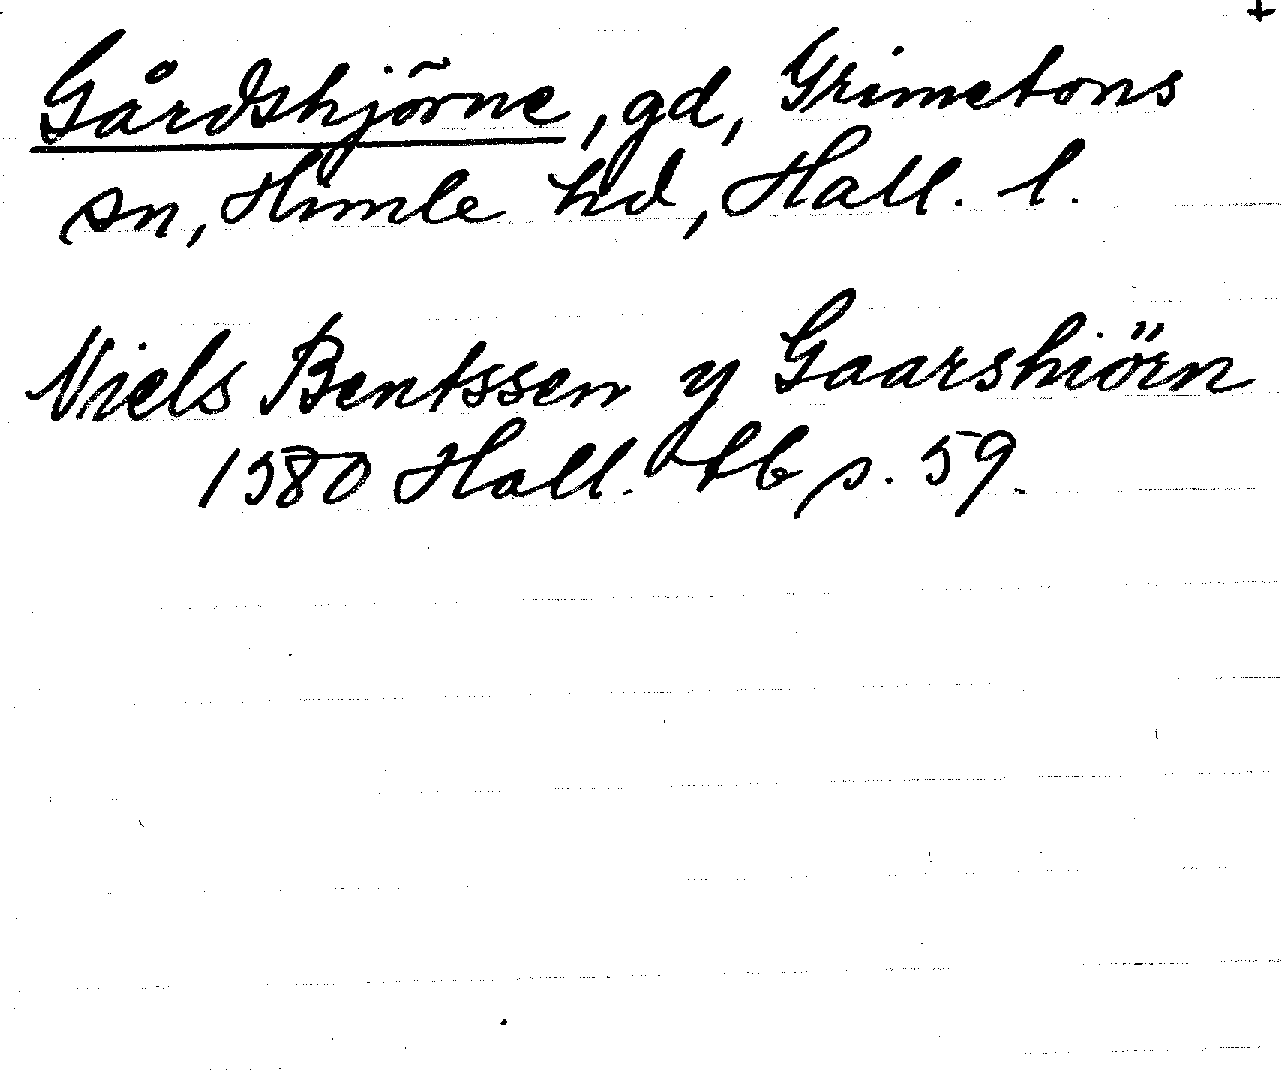 Gårdshjörne, gd, Grimetons
sn, Himle hd, Hall. l.
Niels Bentssen y Gaarshiörn
1580 Hall. lb s. 59.